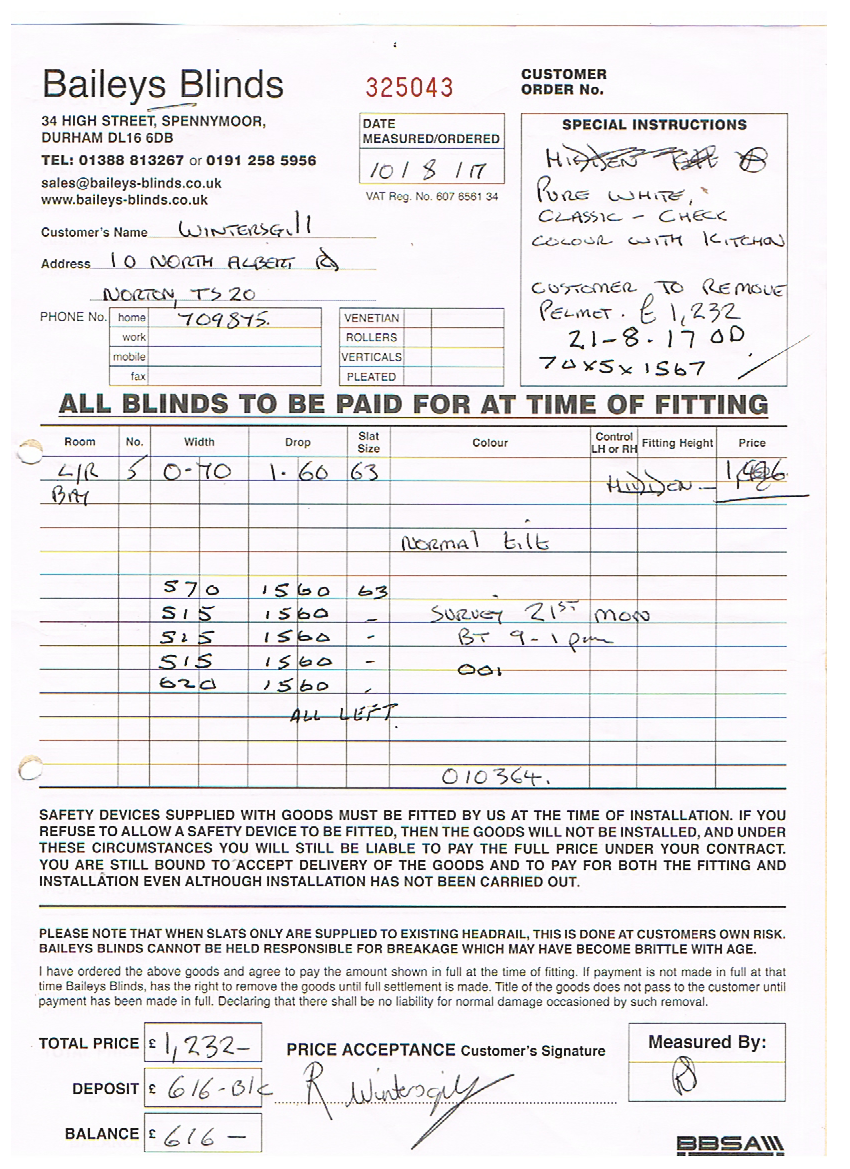 Baileys Blinds
325043
CUSTOMER
ORDER No.
34 HIGH STREET, SPENNYMOOR,
DURHAM DL16 6DB
TEL: 01388 813267 or 0191 258 5956
sales@baileys-blinds.co.uk
www.baileys-blinds.co.uk
DATE
MEASURED/ORDERED
10/8/17
VAT Reg. No. 607 6561 34
SPECIAL INSTRUCTIONS
HIDDEN
PURE WHITE,
CLASSIC - CHECK
COLOUR WITH KITCHON
CUSTOMER TO REMOVE
PELMET. £1,232
21-8.17 OD
70x5x1567
Customer's Name WINTERSGILL
Address 10 NORTH ALBERT RD
NORTON, TS20
PHONE No. home 709875.
work
mobile
fax
VENETIAN
ROLLERS
VERTICALS
PLEATED
ALL BLINDS TO BE PAID FOR AT TIME OF FITTING
Room No. Width Drop Slat Size Colour Control LH or RH Fitting Height Price
L/R 5 0-70 1.60 63 HIDDEN -
BAY
NORMAL tilt
570 1560 63
515 1560 - SURVEY 21ST MON
515 1560 - BT 9-1pm
515 1560 - 001
620 1560
ALL LEFT.
010364.
SAFETY DEVICES SUPPLIED WITH GOODS MUST BE FITTED BY US AT THE TIME OF INSTALLATION. IF YOU
REFUSE TO ALLOW A SAFETY DEVICE TO BE FITTED, THEN THE GOODS WILL NOT BE INSTALLED, AND UNDER
THESE CIRCUMSTANCES YOU WILL STILL BE LIABLE TO PAY THE FULL PRICE UNDER YOUR CONTRACT.
YOU ARE STILL BOUND TO ACCEPT DELIVERY OF THE GOODS AND TO PAY FOR BOTH THE FITTING AND
INSTALLATION EVEN ALTHOUGH INSTALLATION HAS NOT BEEN CARRIED OUT.
PLEASE NOTE THAT WHEN SLATS ONLY ARE SUPPLIED TO EXISTING HEADRAIL, THIS IS DONE AT CUSTOMERS OWN RISK.
BAILEYS BLINDS CANNOT BE HELD RESPONSIBLE FOR BREAKAGE WHICH MAY HAVE BECOME BRITTLE WITH AGE.
I have ordered the above goods and agree to pay the amount shown in full at the time of fitting. If payment is not made in full at that
time Baileys Blinds, has the right to remove the goods until full settlement is made. Title of the goods does not pass to the customer until
payment has been made in full. Declaring that there shall be no liability for normal damage occasioned by such removal.
TOTAL PRICE £ 1,232-
PRICE ACCEPTANCE Customer's Signature
Measured By:
DEPOSIT £ 616-B/C
R Wintersgill
BALANCE £ 616-
BBSA